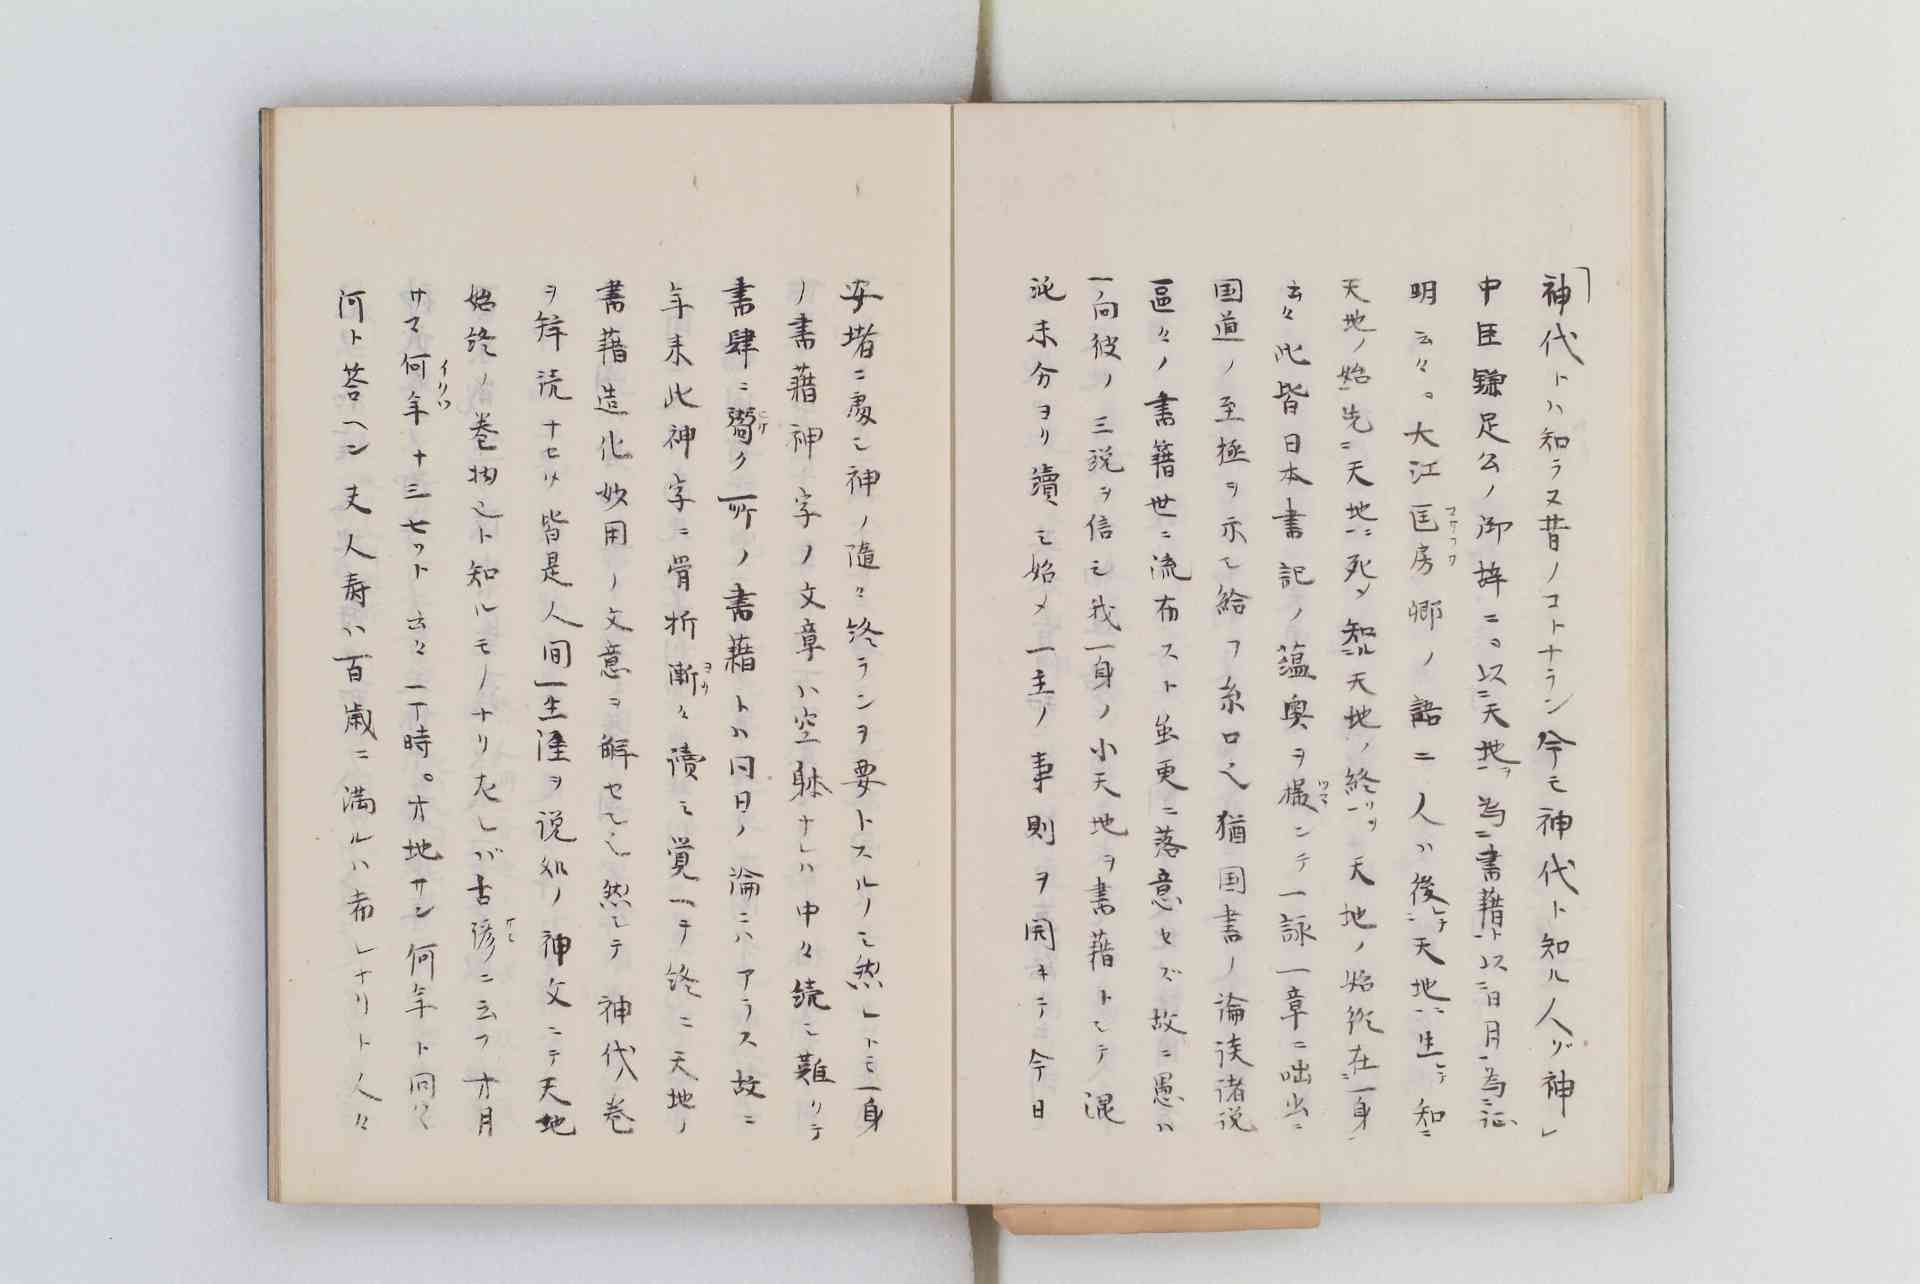 「神代トハ知ラヌ昔ノコトナラン今モ神代ト知ル人ゾ神」
中臣鎌足公ノ御辞ニ。以ニ天地ヲ為ニ書藉ト以ニ日月為ニ証
明云々。大江匡房卿ノ語ニ人ハ後ニシテ天地ニ生シテ知ニ
マサフサ
天地ノ始先ニ天地ニ死シ知ル天地ノ終リヲ天地ノ始終在一身ニ
云々此皆日本書記ノ薀奥ヲ撮ンテ一詠一章ニ咄出ニ
ツマ
国道ノ至極ヲ示シ給フ糸口也猶国書ノ論談諸説
區々ノ書籍世ニ流布スト虽更ニ落意セズ故ニ愚ハ
一向彼ノ三説ヲ信シ我一身ノ小天地ヲ書藉トシテ混
沌未分ヨリ讀シ始メ一主ノ事則ヲ開キテ今日
安堵ニ處シ神ノ随々終ランヲ要トスルノミ然レトモ一身
ノ書藉神字ノ文章ハ空躰ナレハ中々続ミ難クテ
書肆ニ鬻ク所ノ書藉トハ同日ノ論ニハアラス故ニ
年来此神字ニ骨折漸々讀ミ覚ヘテ終ニ天地ノ
書藉造化妙用ノ文意ヲ解セシ也然シテ神代ノ巻
ヲ拜読ナセハ皆是人間一生涯ヲ説処ノ神文ニテ天地
始終ノ巻物也ト知ルモノナリ左レバ古諺ニ云フオ月
サマ何年十三七ツト云々一丁時。オ地サン何年ト問ハヾ
イクツ
何ト荅ヘン夫人寿ハ百歳ニ満ルハ希レナリト人々